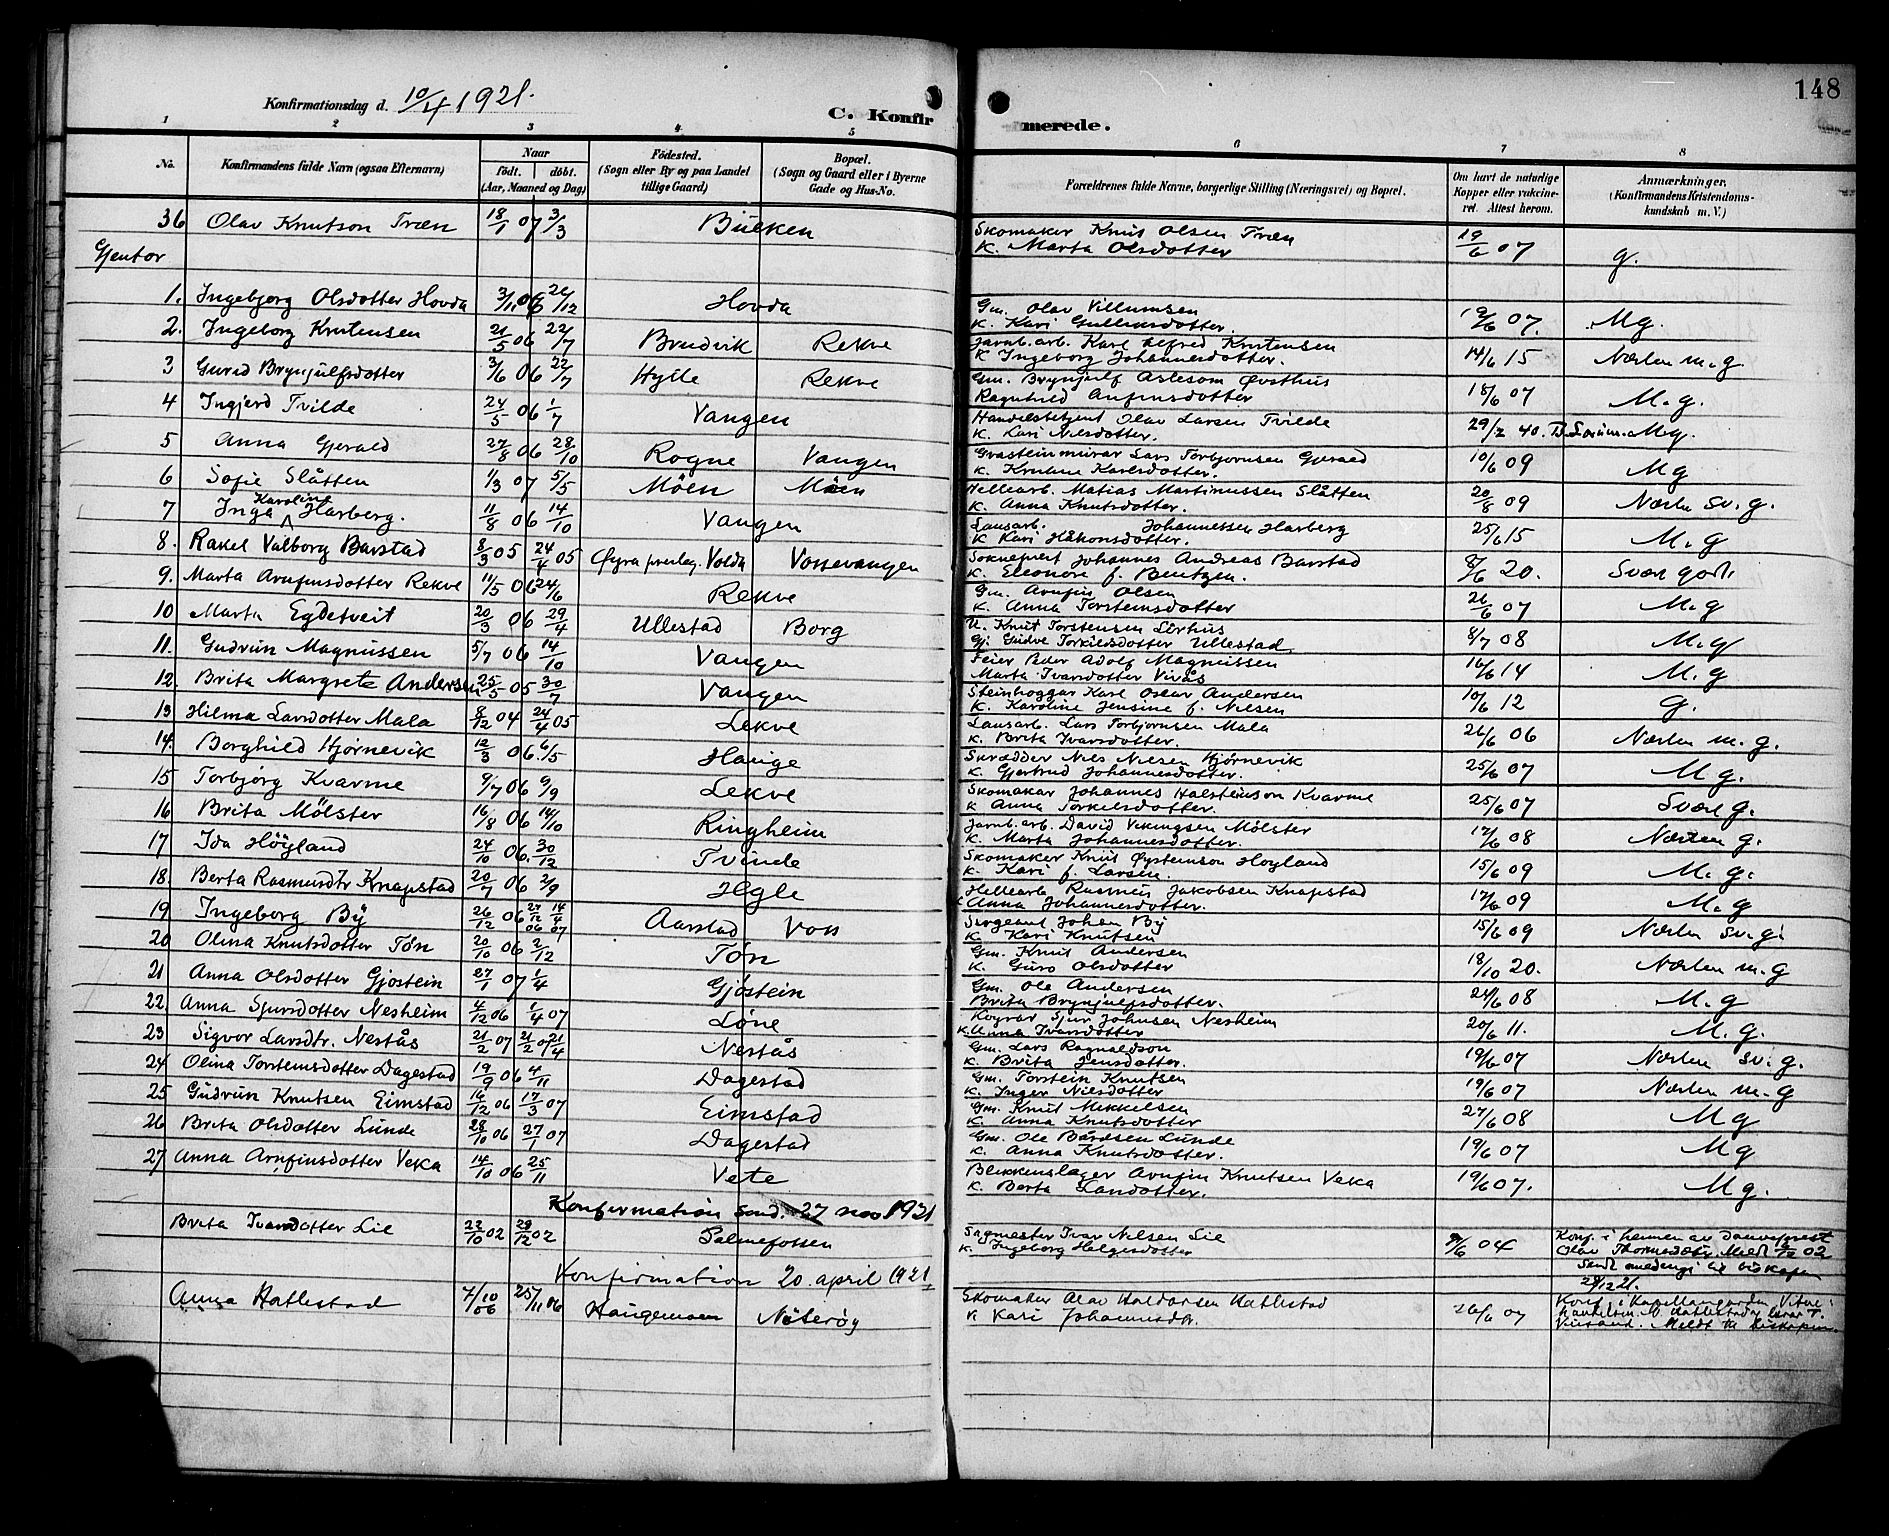 148
Konfirmationsdag d. 10/4 1921.
C. Konfirmerede.
1 2 3 4 5 6 7 8
No.
Konfirmandens fulde Navn (ogsaa Efternavn)
Naar
födt. döbt.
(Aar, Maaned og Dag)
Födested.
(Sogn eller By og paa Landet
tillige Gaard)
Bopæl.
(Sogn og Gaard eller i Byerne
Gade og Hus-No.
Forældrenes fulde Navne, borgerlige Stilling (Næringsvei) og Bopæl.
Om havt de naturlige
Kopper eller vakcine-
ret. Attest herom.
Anmærkninger.
(Konfirmandens Kristendoms-
kundskab m. V.)
36 Olav Knutson Træn 18/1 07 3/3 Bueken Skomaker Knut Olsen Træn
K. Marta Olsdotter 19/6 07 g.
Gjentor
1. Ingebjorg Olsdotter Hovda 3/11 06 26/12 Hovda Gm. Olav Villumsen
K. Kari Gullensdotter. 19/6 07. Mg.
2. Ingeborg Kristensen 21/5 06 22/7 Brudvik Rekve Jarnb. arb. Karl Alfred Kristensen
K Ingeborg Johannesdotter. 14/6 15 Næsten m. g
3 Gurid Brynjulfsdotter 3/6 06 22/7 Hylle Rekve Gm. Brynjulf Aslesom Øvsthus
Ragnhild Anfinsdotter 18/6 07 M. g.
4 Ingjerd Tvilde 24/5 06 1/7 Vangen Handelsbetjent Olav Larsen Tvilde
K. Kari Nilsdotter. 29/2 40. Mg.
5 Anna Gjerald 27/8 06 28/10 Rogne Vangen Grasteinmurar Lars Torbjornsen Gjerald
K. Karlsdotter. 10/6 09 Mg
6 Sofie Slåtten 11/3 07 5/5 Möen Möen Hellearb. Matias Martinussen Slåtten
K. Anna Knutsdotter. 20/8 09 Næsten Sv. g.
7 Inga Karoline Harberg. 11/8 06 14/10 Vangen Lausarb. Johannessen Harberg
K Kari Håkonsdotter. 25/6 15 M. g
8. Rakel Valborg Barstad 8/3 05 24/4 05 Øyra presteg. Volda Vossevangen Sokneprest Johannes Andreas Barstad
K. Eleonore f. Bentzen. 8/6 20. Svært godt.
9. Marta Arnfinsdotter Rekve 11/5 06 24/6 Rekve Gm. Arnfin Olsen
K. Anna Torsteinsdotter 26/6 07 M. g
10 Marta Egdetveit 20/3 06 29/4 Ullestad Borg U. Knut Torstensen Lirhus
Gj. Gudve Torkilsdotter Ullestad 8/7 08 M. g
11. Gudrun Magnussen 5/7 06 14/10 Vangen Feier Peder Adolf Magnussen
Marta Ivarsdotter Virås 16/6 14 M. g
12. Brita Margrete Andersen 25/5 05 30/7 Vangen Steinhoggar Karl Oscar Andersen
K. Karoline Jensine f. Nilsen 10/6 12 G.
13 Hilma Larsdotter Mala 8/12 04 24/4 05 Lekve Lausarb. Lars Torbjornsen Mala
K. Brita Ivarsdotter. 26/6 06 Næsten m. g.
14. Borghild Hjørnevik 12/3 06 6/5 Hauge Skrædder Nils Nilsen Hjørnevik
K. Gjertrud Johannesdotter. 25/6 07 M g.
15 Torbjørg Kvarme 9/7 06 9/9 Lekve Skomakar Johannes Halsteinson Kvarme
K Anna Torkelsdotter. 25/6 07 Svært g.
16 Brita Mölster 16/8 06 14/10 Ringheim Jarnb. arb. David Vikingsen Mølster
K. Marta Johannesdotter. 12/6 08 Næsten g.
17 Ida Höyland 24/10 06. 30/12 Tvinde Skomaker Knut Øysteinson Höyland
K. Kari f. Larsen. 15/6 09 M. g.
18. Berta Rasmusdtr Knapstad 20/7 06 2/9 Hgle Hellearb Rasmus Jakobsen Knapstad
K Anna Johannesdotter. 17/6 09 M. g
19 Ingeborg By 26/12 06 27/12 06 14/4 07 Aarstad Voss Sergeant Johan By
K. Kari Knutsen 15/6 09 Næsten Sv. g.
20 Olina Knutsdotter Tøn 20/10 06 2/12 Tøn Gm. Knut Andersen
K. Guro Olsdotter 18/10 20. Næsten m. g
21 Anna Olsdotter Gjostein 27/1 07 1/4 Gjöstein Gm. Ole Andersen
Brita Brynjulfsdotter. 24/6 08 M. g
22 Anna Sjursdotter Nesheim 4/12 06 1/4 07 Løne Sjur Johnsen Nesheim
K. Anna Ivarsdotter 20/6 11. M. g.
23 Sigvor Larsdtr. Nestås 21/2 07 21/4 Nestås Gm. Lars Ragnaldson
K. Brita Jensdotter. 19/6 07 Næsten sv. g.
24 Olina Torsteinsdotter Dagestad 19/9 06 4/11 Dagestad Gm. Torstein Knutsen
K. Inger Nilsdotter 19/6 07 Næsten m. g
25 Gudrun Knutsen Eimstad 16/12 06 17/3 07 Eimstad Gm. Knut Mikkelsen
K. Anna Knutsdotter 27/6 08 M g
26 Brita Olsdotter Lunde 28/10 06 27/1 07 Dagestad Gm. Ole Bårdsen Lunde
K. Anna Knutsdotter. 19/6 07 Mg
27 Anna Arnfinsdotter Veka 14/10 06 25/11 Vete Blikkenslager Arnfin Knutsen Veka
K. Berta Larsdotter. 19/6 07. Mg.
Konfirmation Sond. 27 nov 1921
Brita Ivarsdotter Lie 22/10 02 29/12 02 Palmefossen Sagmester Ivar Nilsen Lie
K. Ingeborg Helgesdotter 04 Konf. i heimen av Dauveprest
Olav
28/12 21.
Konfirmation 20. april 1921
Anna Hatlestad 7/10 06 25/11 06 Haugemoen Nöterøy Skomaker Olav Haldorsen Hatlestad
K Kari Johannesdtr. 26/6 07 Konf. i
Meldt til biskopen.